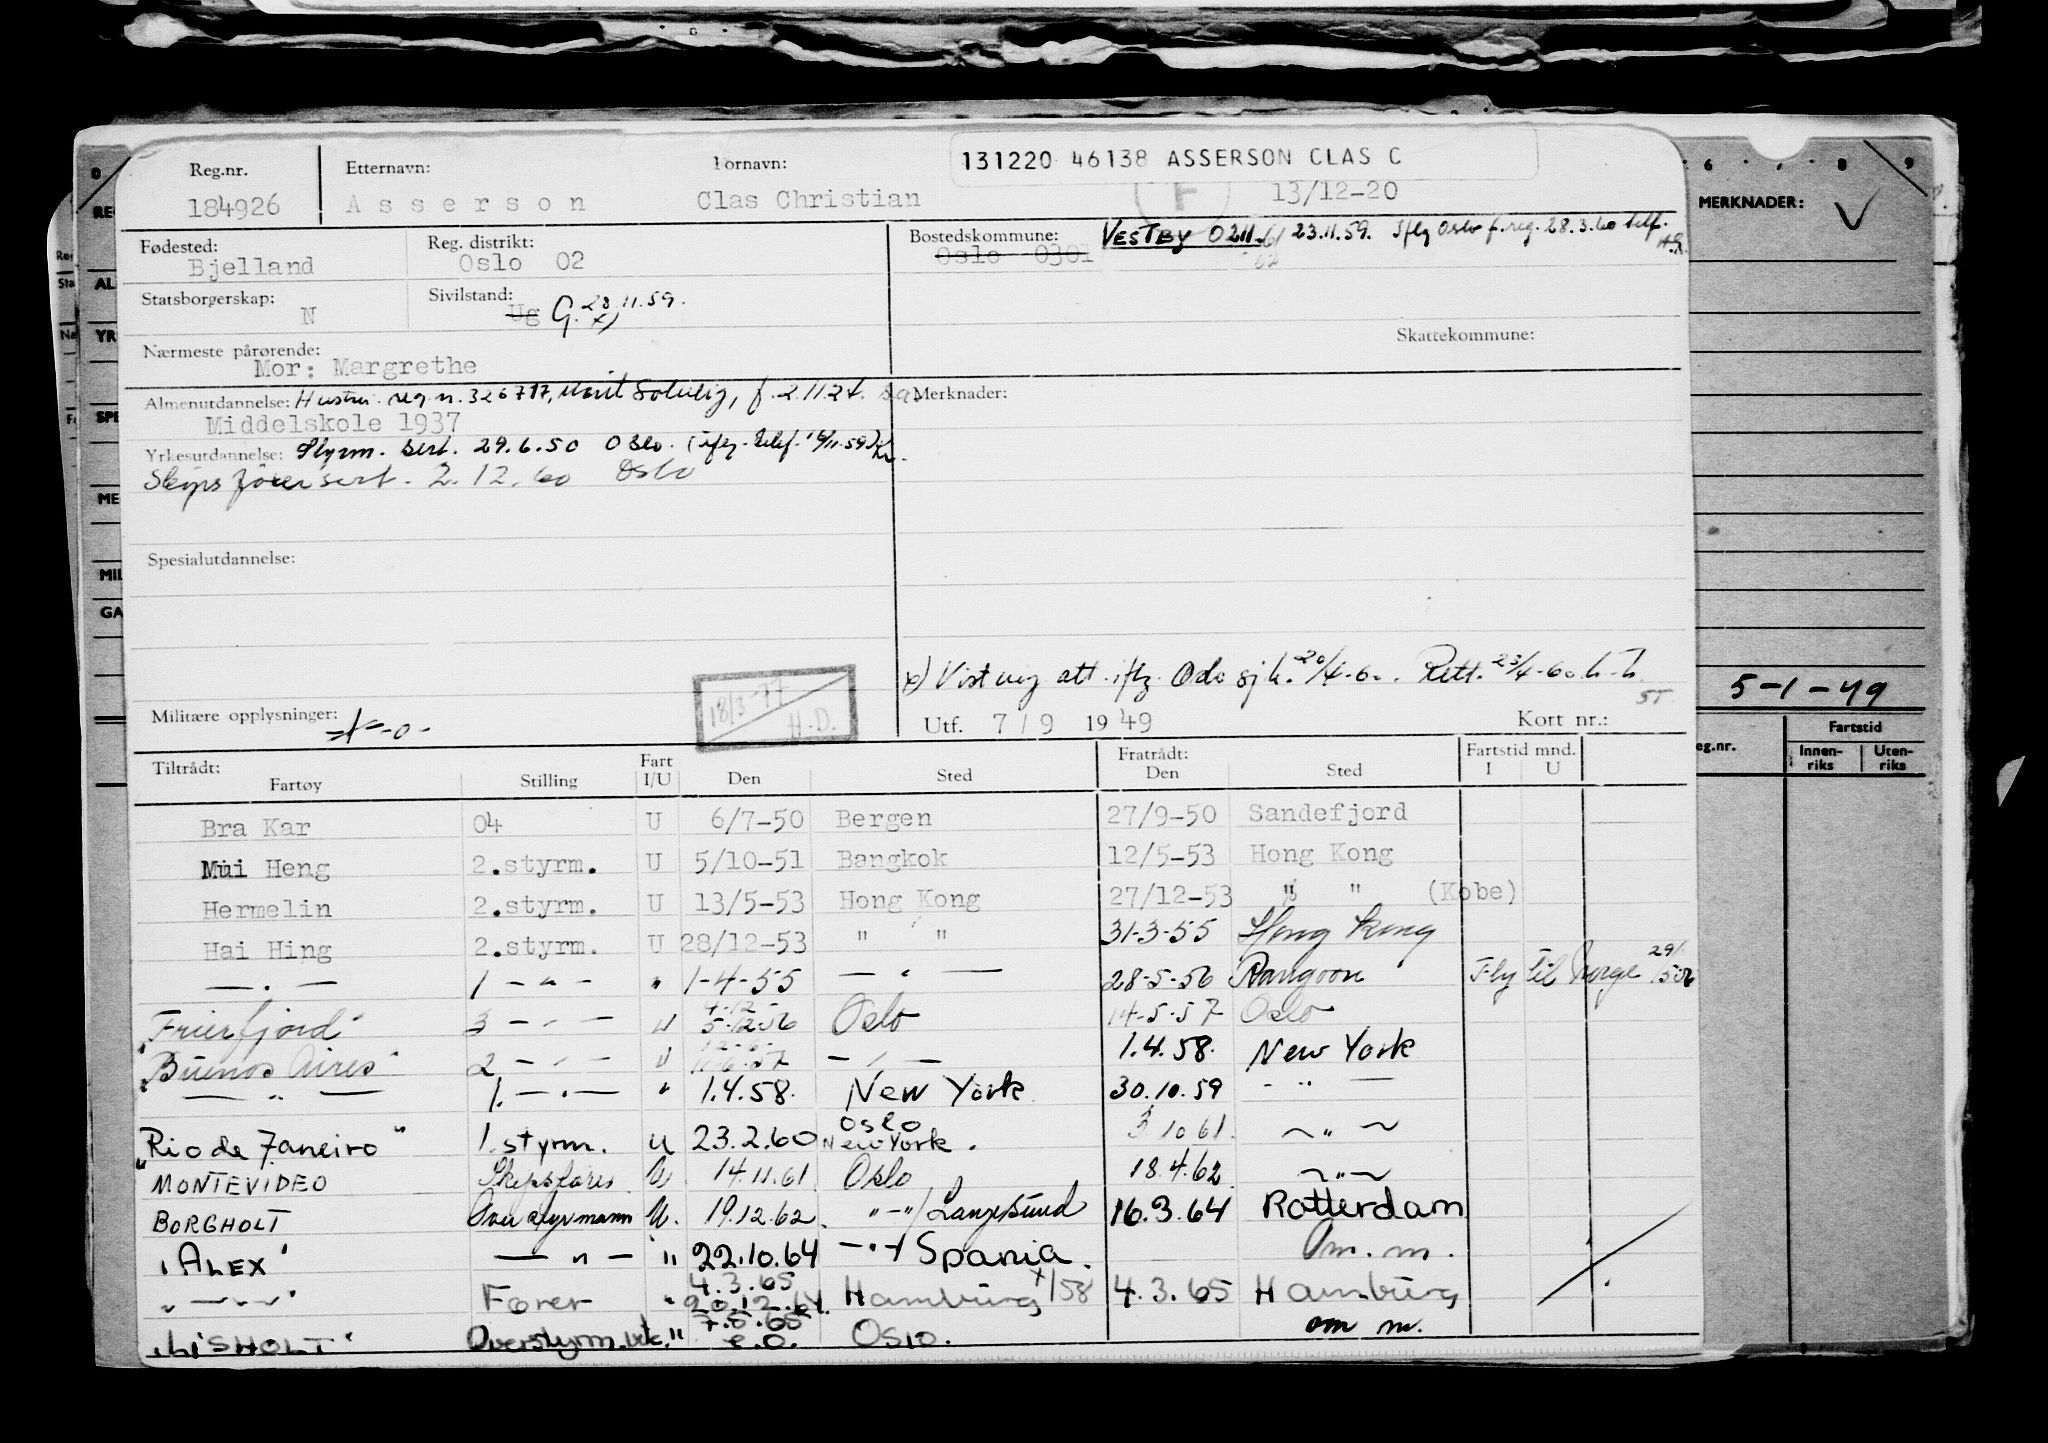 Reg.nr. Etternavn: Fornavn: 131220 46138 ASSERSON CLAS C
184926 Asserson Clas Christian F 13/12-20
MERKNADER:
Fødested: Reg. distrikt: Bostedskommune: VESTBY 0211. 23.11.59. Iflg Oslo f.reg. 28.3.60 telf.
Bjelland Oslo 02 Oslo 0301
Statsborgerskap: Sivilstand:
N Ug G. 28/11.59. x)
Skattekommune:
Nærmeste pårørende:
Mor: Margrethe
Almenutdannelse: Hustru reg.n. 326717, Marit Solveig, f. 2.11.24. Merknader:
Middelskole 1937
Yrkesutdannelse: Styrm. sert. 29.6.50 Oslo. (iflg. telef. 19/11.59)
Skipsførersert. 2.12.60 Oslo
Spesialutdannelse:
x) Vist vig att. iflg. Oslo sjk. 20/4-60. Rett. 23/4-60.
5-1-49
18/3-77
H.-D.
Militære opplysninger: -0- Utf. 7/9 1949 Kort nr.:
Tiltrådt: Fart Fratrådt: Fartstid mnd.
Fartøy Stilling I/U Den Sted Den Sted I U
Fartstid
Innenriks Utenriks
Bra Kar 04 U 6/7-50 Bergen 27/9-50 Sandefjord
Mui Heng 2.styrm. U 5/10-51 Bangkok 12/5-53 Hong Kong
Hermelin 2.styrm. U 13/5-53 Hong Kong 27/12-53 " " (Kobe)
Hai Hing 2.styrm. U 28/12-53 " " 31-3-55 Hong Kong
— " — 1 — " — " 1-4-55 — " — 28-5-56 Rangoon Fly til Norge 29/5.56
"Frierfjord" 3 — " — u 4-12- 5-12-56 Oslo 14-5-57 Oslo
"Buenos Aires" 2 — " — u 11-6-57 — " — 1.4.58. New York
— " — 1. — " — " 1.4.58. New York 30.10.59 — " —
"Rio de Janeiro" 1. styrm. u 23.2.60 Oslo New York. 3.10.61. — " —
MONTEVIDEO Skipsfører U 14.11.61 Oslo 18.4.62 — " —
BORGHOLT Overstyrmann U. 19.12.62. "-"/Langesund 16.3.64 Rotterdam
"ALEX" — " — " 22.10.64 — " — Spania. Om. m.
" — " — " Fører " 4.3.65 20.12.64. Hamburg x/58 4.3.65 Hamburg
om m.
"LISHOLT" Overstyrm.vik. " 7.5.65 e.o. Oslo.